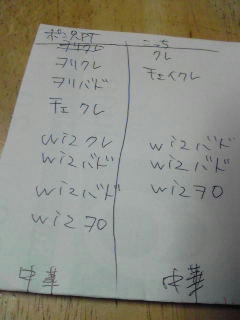 こっち
ヲリクレ
クレ
ヲリクレ
チェイクレ
ヲリバド
チェ クレ
wiz クレ
wiz バド
wiz バド
wiz バド
wiz バド
wiz プロ
wiz プロ
中華
中華